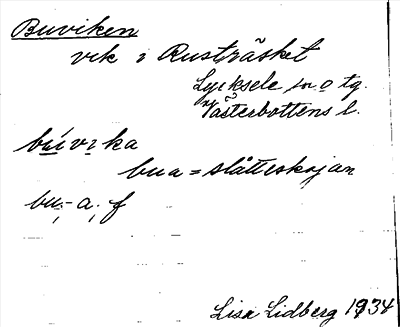 Buviken
vik i Rusträsket
Lycksele sn o tg.
Västerbottens l.
búvıka
bua = slåtteskojan
bu, -a, f
Lisa Lidberg 1934